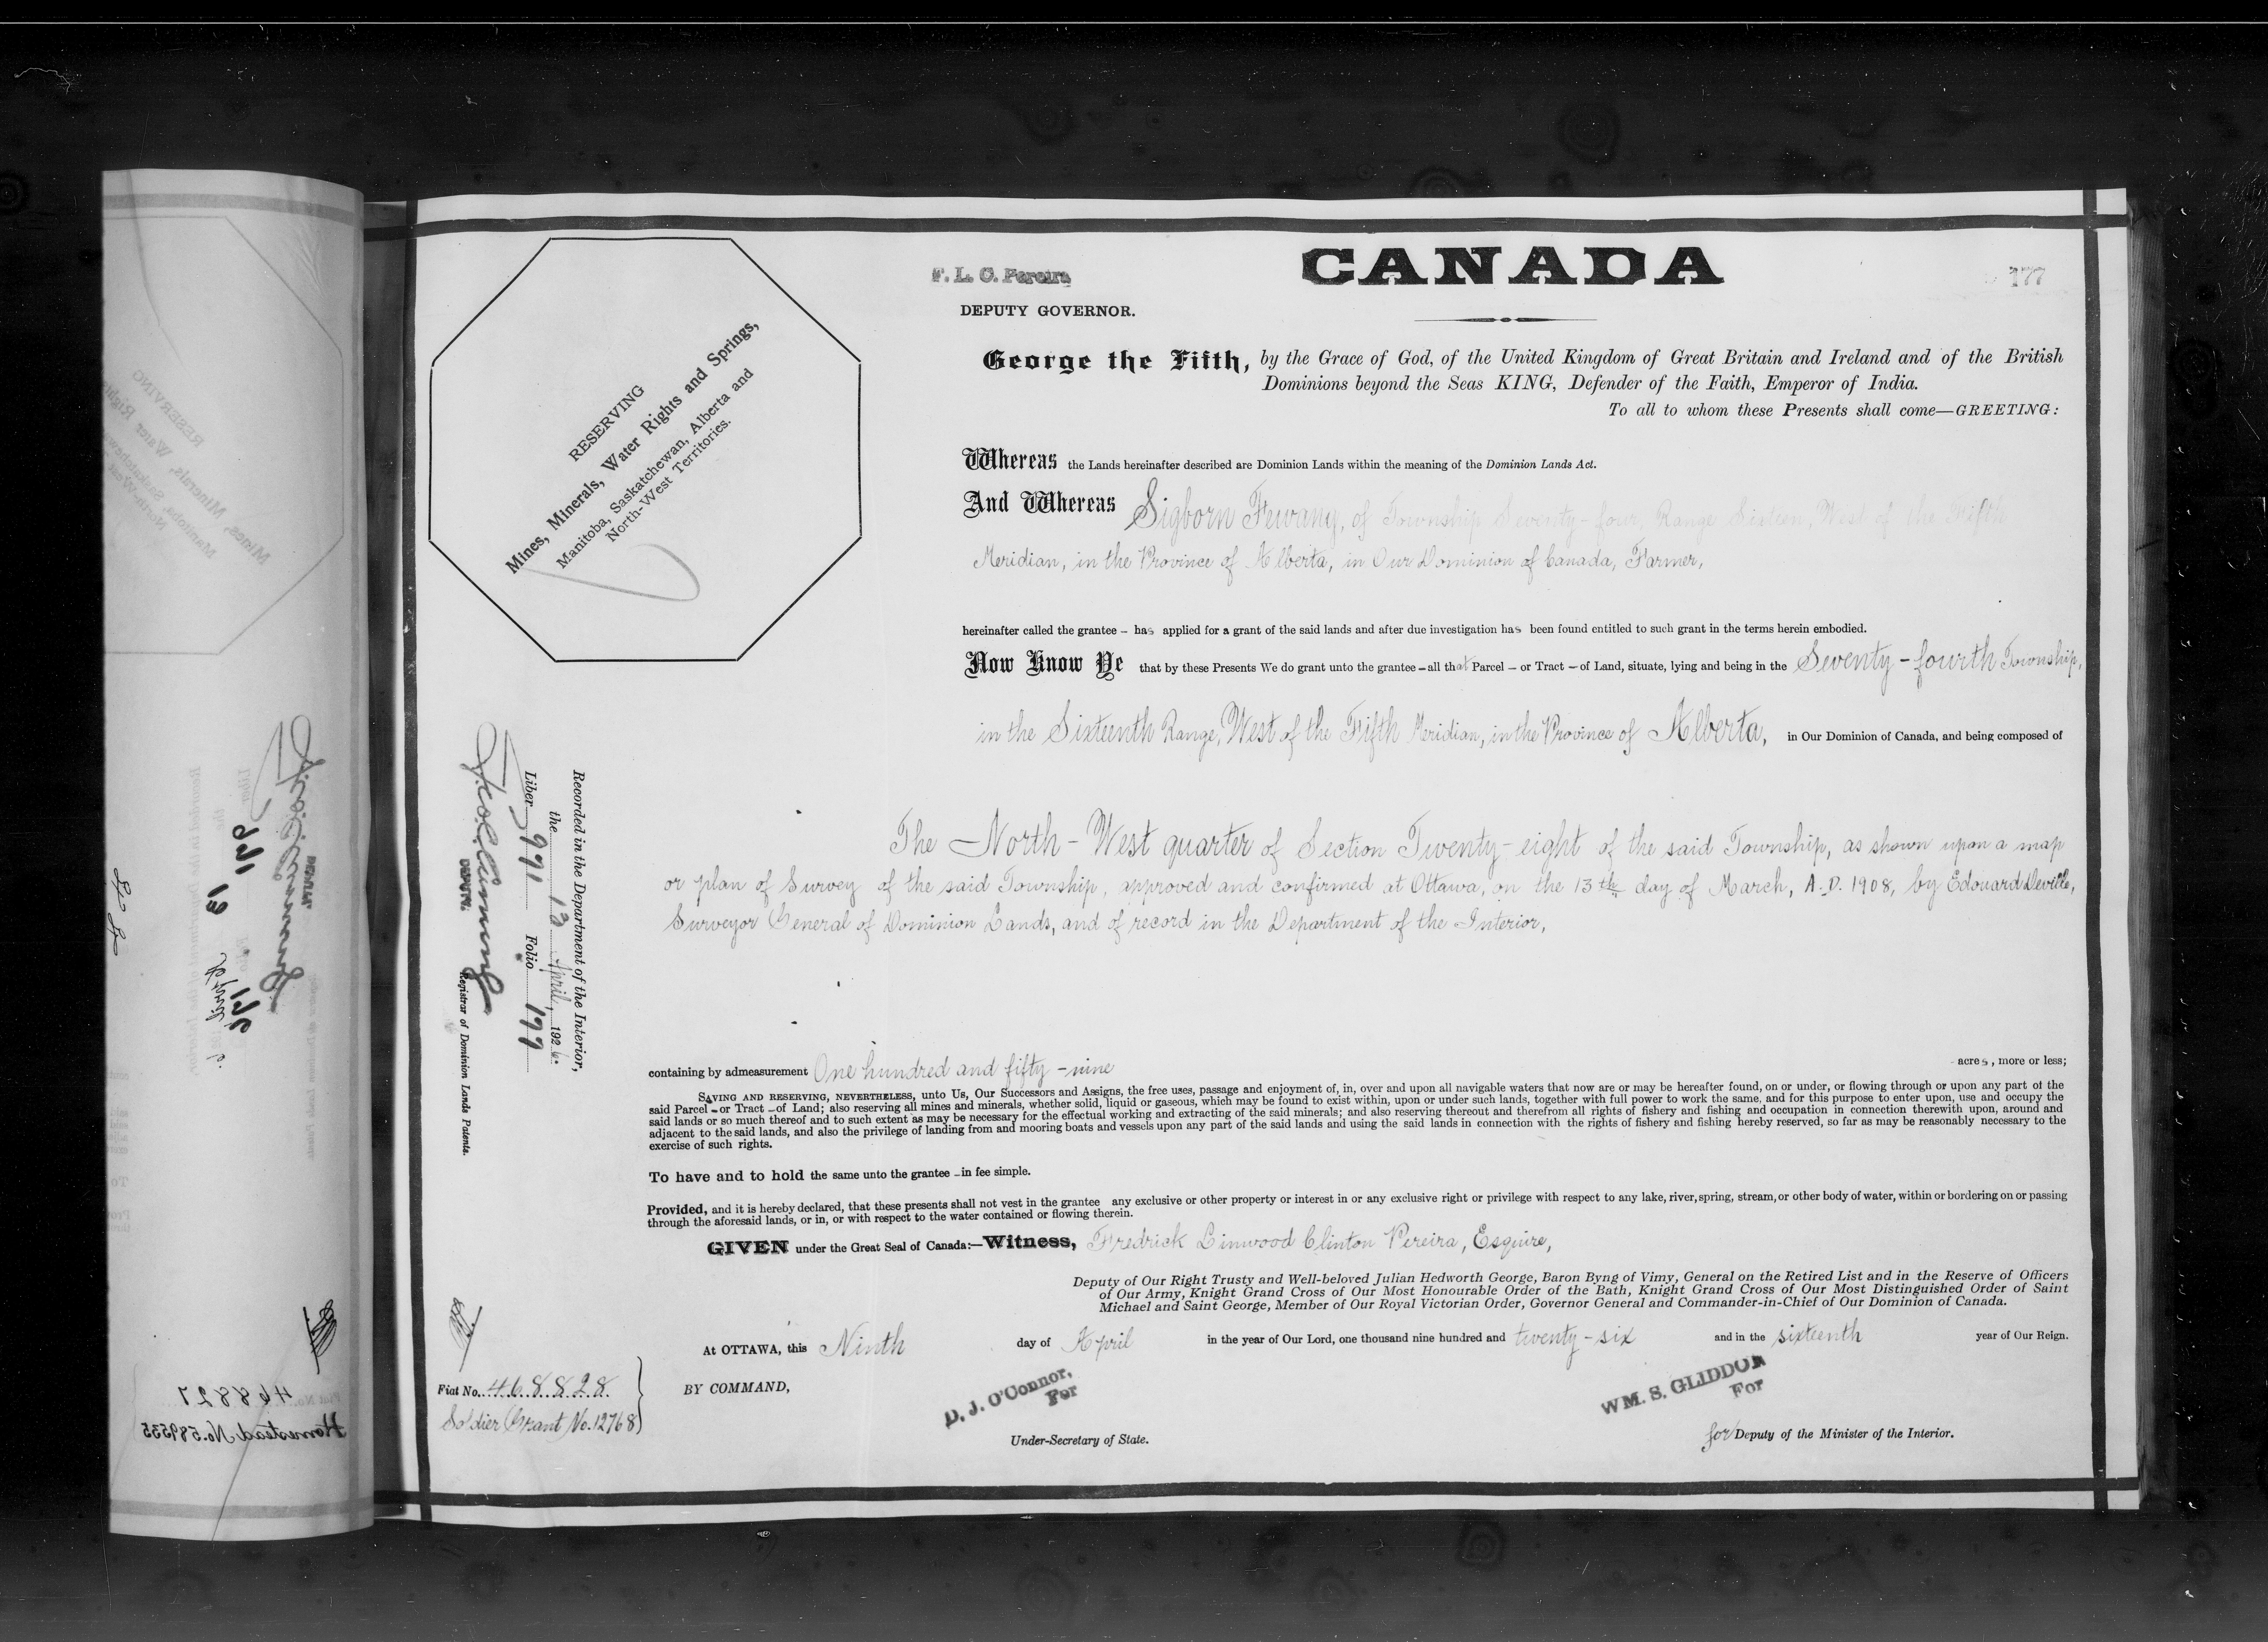 F. L. C. Pereira
DEPUTY GOVERNOR.
CANADA
177
RESERVING
Mines, Minerals, Water Rights and Springs,
Manitoba, Saskatchewan, Alberta and
North-West Territories.
George the Fifth, by the Grace of God, of the United Kingdom of Great Britain and Ireland and of the British
Dominions beyond the Seas KING, Defender of the Faith, Emperor of India.
To all to whom these Presents shall come—GREETING:
Whereas the Lands hereinafter described are Dominion Lands within the meaning of the Dominion Lands Act.
And Whereas Sigborn Fewang, of Township Seventy-four, Range Sixteen, West of the Fifth
Meridian, in the Province of Alberta, in Our Dominion of Canada, Farmer,
hereinafter called the grantee – has applied for a grant of the said lands and after due investigation has been found entitled to such grant in the terms herein embodied.
Now Know Ye that by these Presents We do grant unto the grantee – all that Parcel – or Tract – of Land, situate, lying and being in the Seventy-fourth Township,
in the Sixteenth Range, West of the Fifth Meridian, in the Province of Alberta, in Our Dominion of Canada, and being composed of
The North-West quarter of Section Twenty-eight of the said Township, as shown upon a map
or plan of Survey of the said Township, approved and confirmed at Ottawa, on the 13th day of March, A.D. 1908, by Edouard Deville,
Surveyor General of Dominion Lands, and of record in the Department of the Interior,
Recorded in the Department of the Interior,
the 13 April, 1926.
Liber 971 Folio 177
DEPUTY. Registrar of Dominion Lands Patents.
containing by admeasurement One hundred and fifty-nine acres, more or less;
SAVING AND RESERVING, NEVERTHELESS, unto Us, Our Successors and Assigns, the free uses, passage and enjoyment of, in, over and upon all navigable waters that now are or may be hereafter found, on or under, or flowing through or upon any part of the
said Parcel – or Tract – of Land; also reserving all mines and minerals, whether solid, liquid or gaseous, which may be found to exist within, upon or under such lands, together with full power to work the same, and for this purpose to enter upon, use and occupy the
said lands or so much thereof and to such extent as may be necessary for the effectual working and extracting of the said minerals; and also reserving thereout and therefrom all rights of fishery and fishing and occupation in connection therewith upon, around and
adjacent to the said lands, and also the privilege of landing from and mooring boats and vessels upon any part of the said lands and using the said lands in connection with the rights of fishery and fishing hereby reserved, so far as may be reasonably necessary to the
exercise of such rights.
To have and to hold the same unto the grantee – in fee simple.
Provided, and it is hereby declared, that these presents shall not vest in the grantee any exclusive or other property or interest in or any exclusive right or privilege with respect to any lake, river, spring, stream, or other body of water, within or bordering on or passing
through the aforesaid lands, or in, or with respect to the water contained or flowing therein.
GIVEN under the Great Seal of Canada:—Witness, Fredrick Linwood Clinton Pereira, Esquire,
Deputy of Our Right Trusty and Well-beloved Julian Hedworth George, Baron Byng of Vimy, General on the Retired List and in the Reserve of Officers
of Our Army, Knight Grand Cross of Our Most Honourable Order of the Bath, Knight Grand Cross of Our Most Distinguished Order of Saint
Michael and Saint George, Member of Our Royal Victorian Order, Governor General and Commander-in-Chief of Our Dominion of Canada.
At OTTAWA, this Ninth day of April in the year of Our Lord, one thousand nine hundred and twenty-six and in the sixteenth year of Our Reign.
Fiat No. 468828
Soldier Grant No. 12768
BY COMMAND,
D. J. O'Connor,
For
Under-Secretary of State.
WM. S. GLIDDON
For
for Deputy of the Minister of the Interior.
Fiat No. 468827
Homestead No. 589535